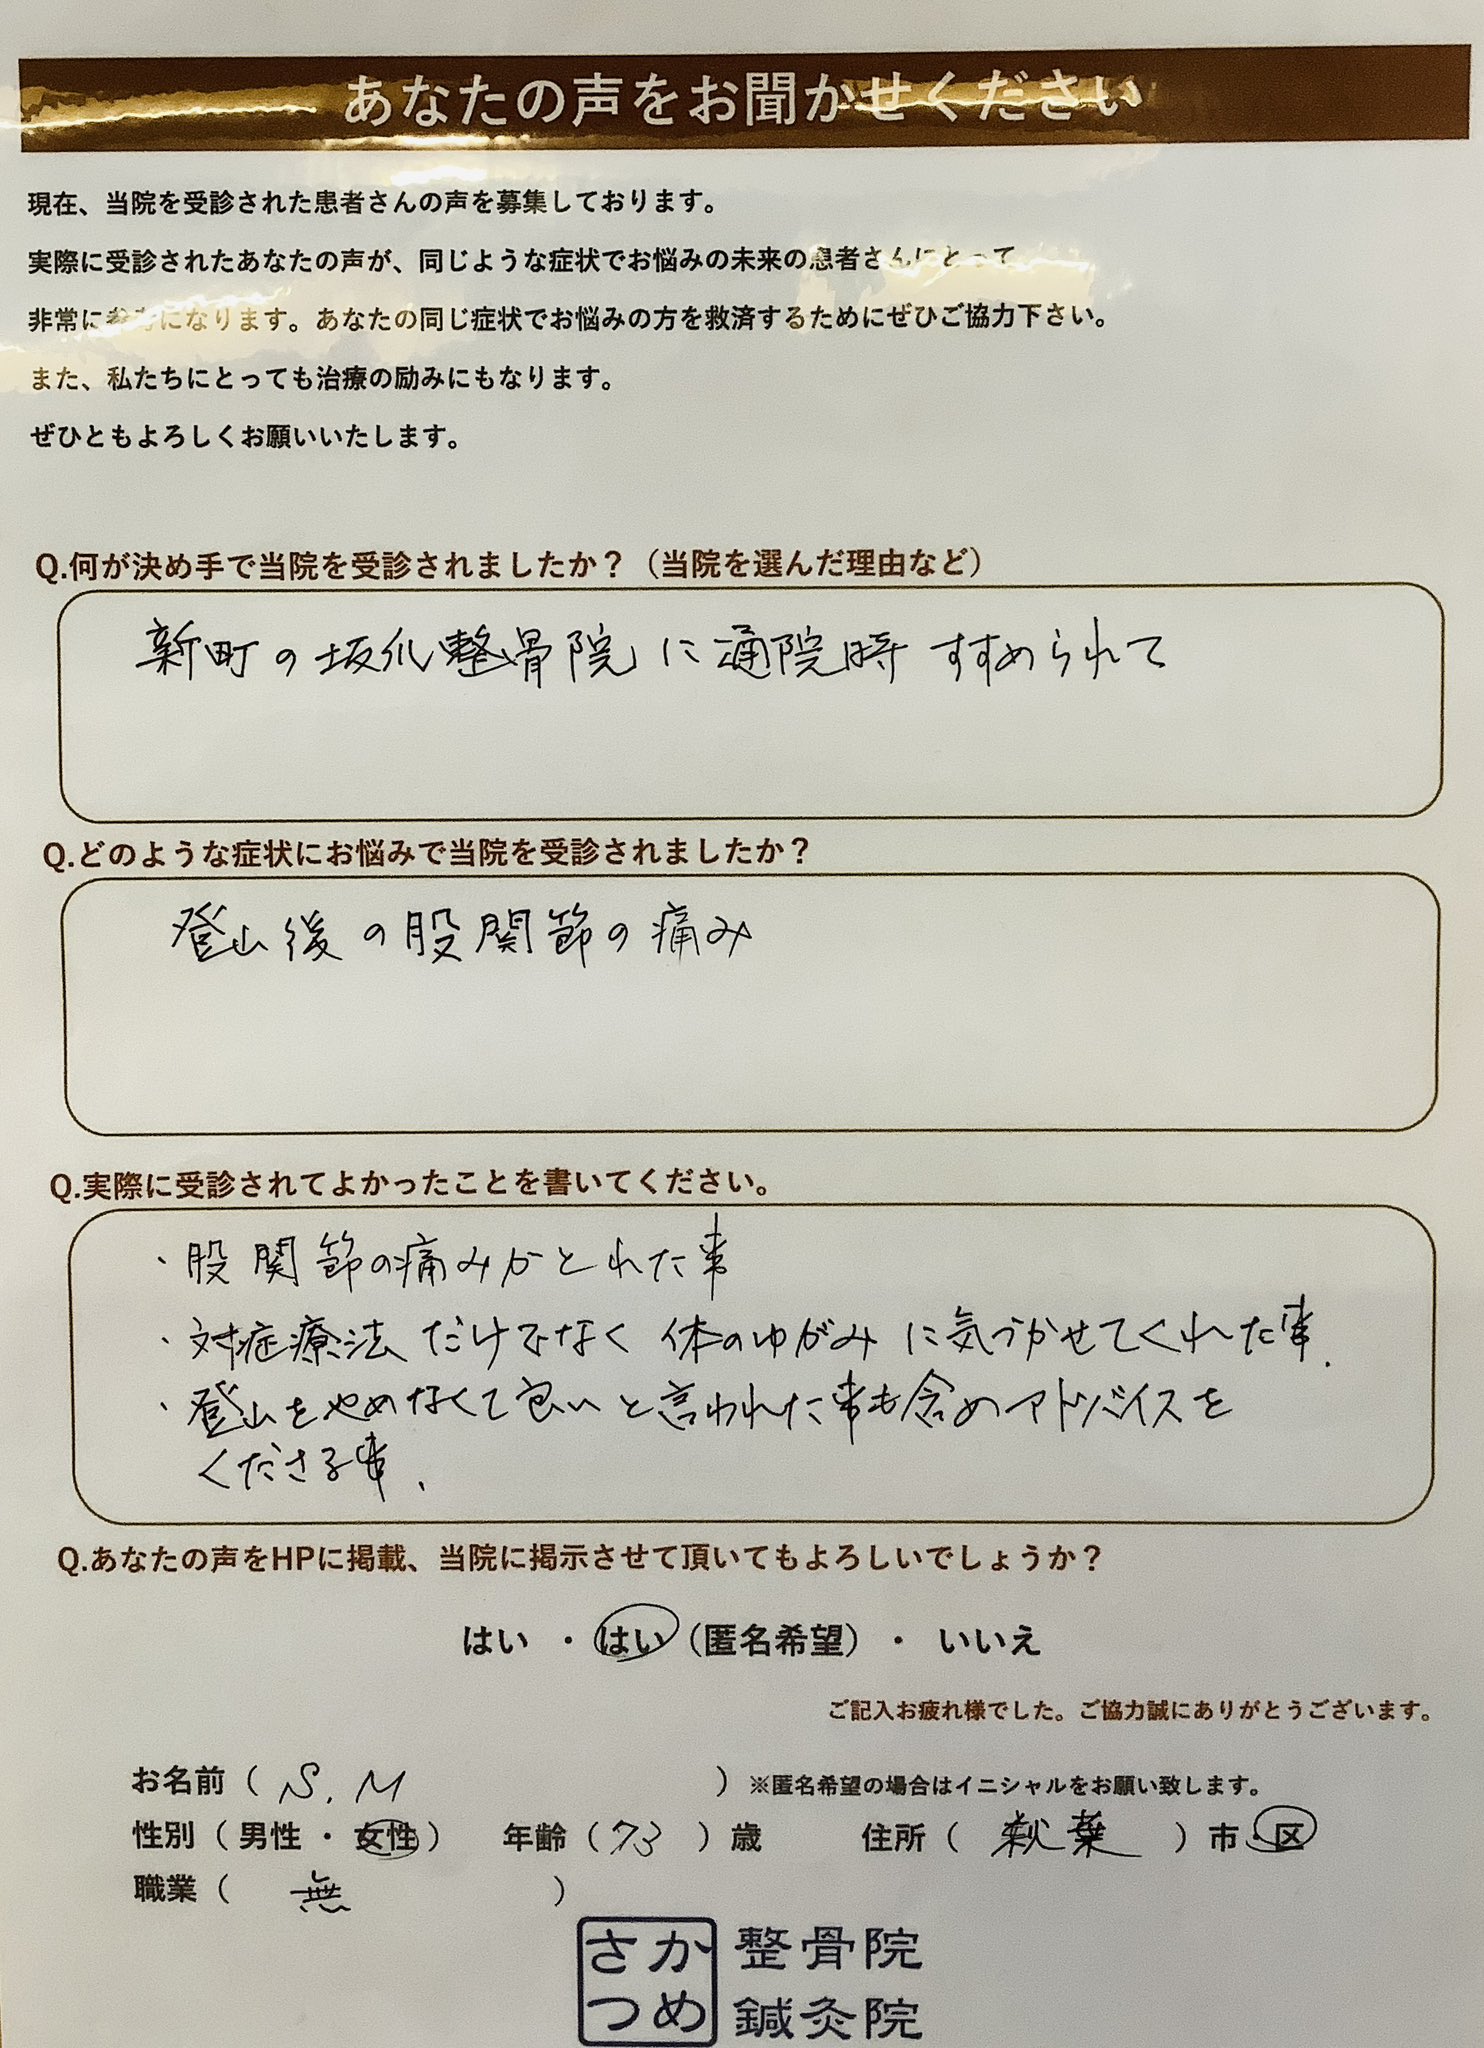 あなたの声をお聞かせください
現在、当院を受診された患者さんの声を募集しております。
実際に受診されたあなたの声が、同じような症状でお悩みの未来の患者さんにとって
非常に参考になります。あなたの同じ症状でお悩みの方を救済するためにぜひご協力下さい。
また、私たちにとっても治療の励みにもなります。
ぜひともよろしくお願いいたします。
Q.何が決め手で当院を受診されましたか？（当院を選んだ理由など）
新町の坂爪整骨院に通院時すすめられて
Q.どのような症状にお悩みで当院を受診されましたか？
登山後の股関節の痛み
Q.実際に受診されてよかったことを書いてください。
・股関節の痛みがとれた事
・対症療法だけでなく体のゆがみに気づかせてくれた事.
・登山をやめなくて良いと言われた事も含めアドバイスを
くださる事.
Q.あなたの声をHPに掲載、当院に掲示させて頂いてもよろしいでしょうか？
はい ・ はい（匿名希望）・ いいえ
ご記入お疲れ様でした。ご協力誠にありがとうございます。
お名前（ S.M ）※匿名希望の場合はイニシャルをお願い致します。
性別（ 男性 ・ 女性） 年齢（ 73 ）歳 住所（ 秋葉 ）市・区
職業（ 無 ）
さか 整骨院
つめ 鍼灸院